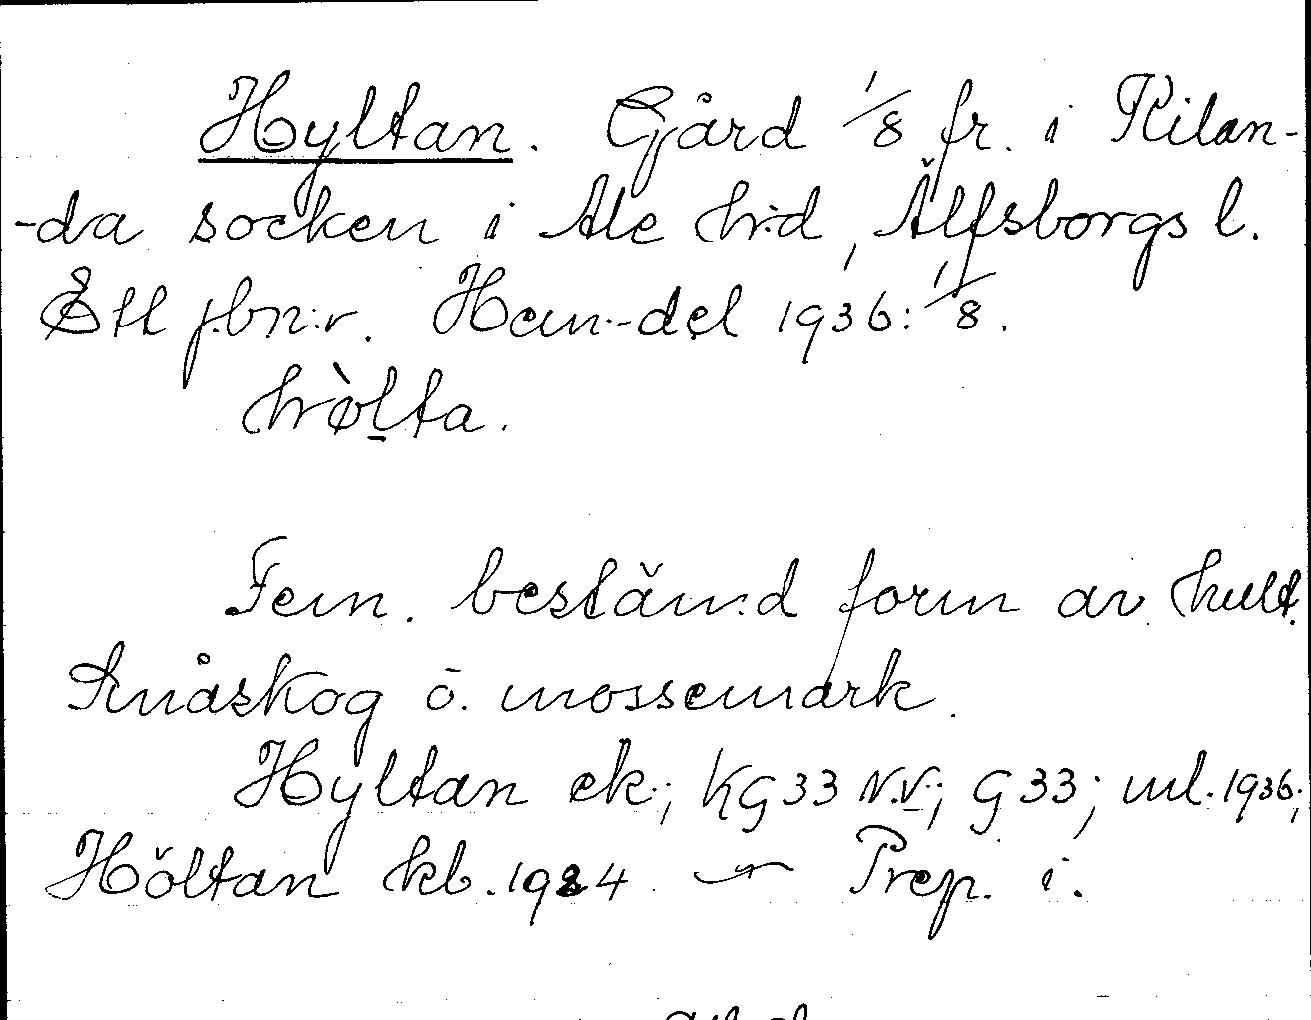 Hyltan. Gård 1/8 fr. i Kilan-
-da socken i Ale h:d, Älfsborgs l.
Ett j.bn:r. Hem.-del 1936: 1/8.
hø̀lta.
Fem. bestämd form av hult.
Småskog o. mossemark.
Hyltan ek.; KG33 N.V.; G33; ml. 1936;
Höltan kb. 1924. — Prep. i.